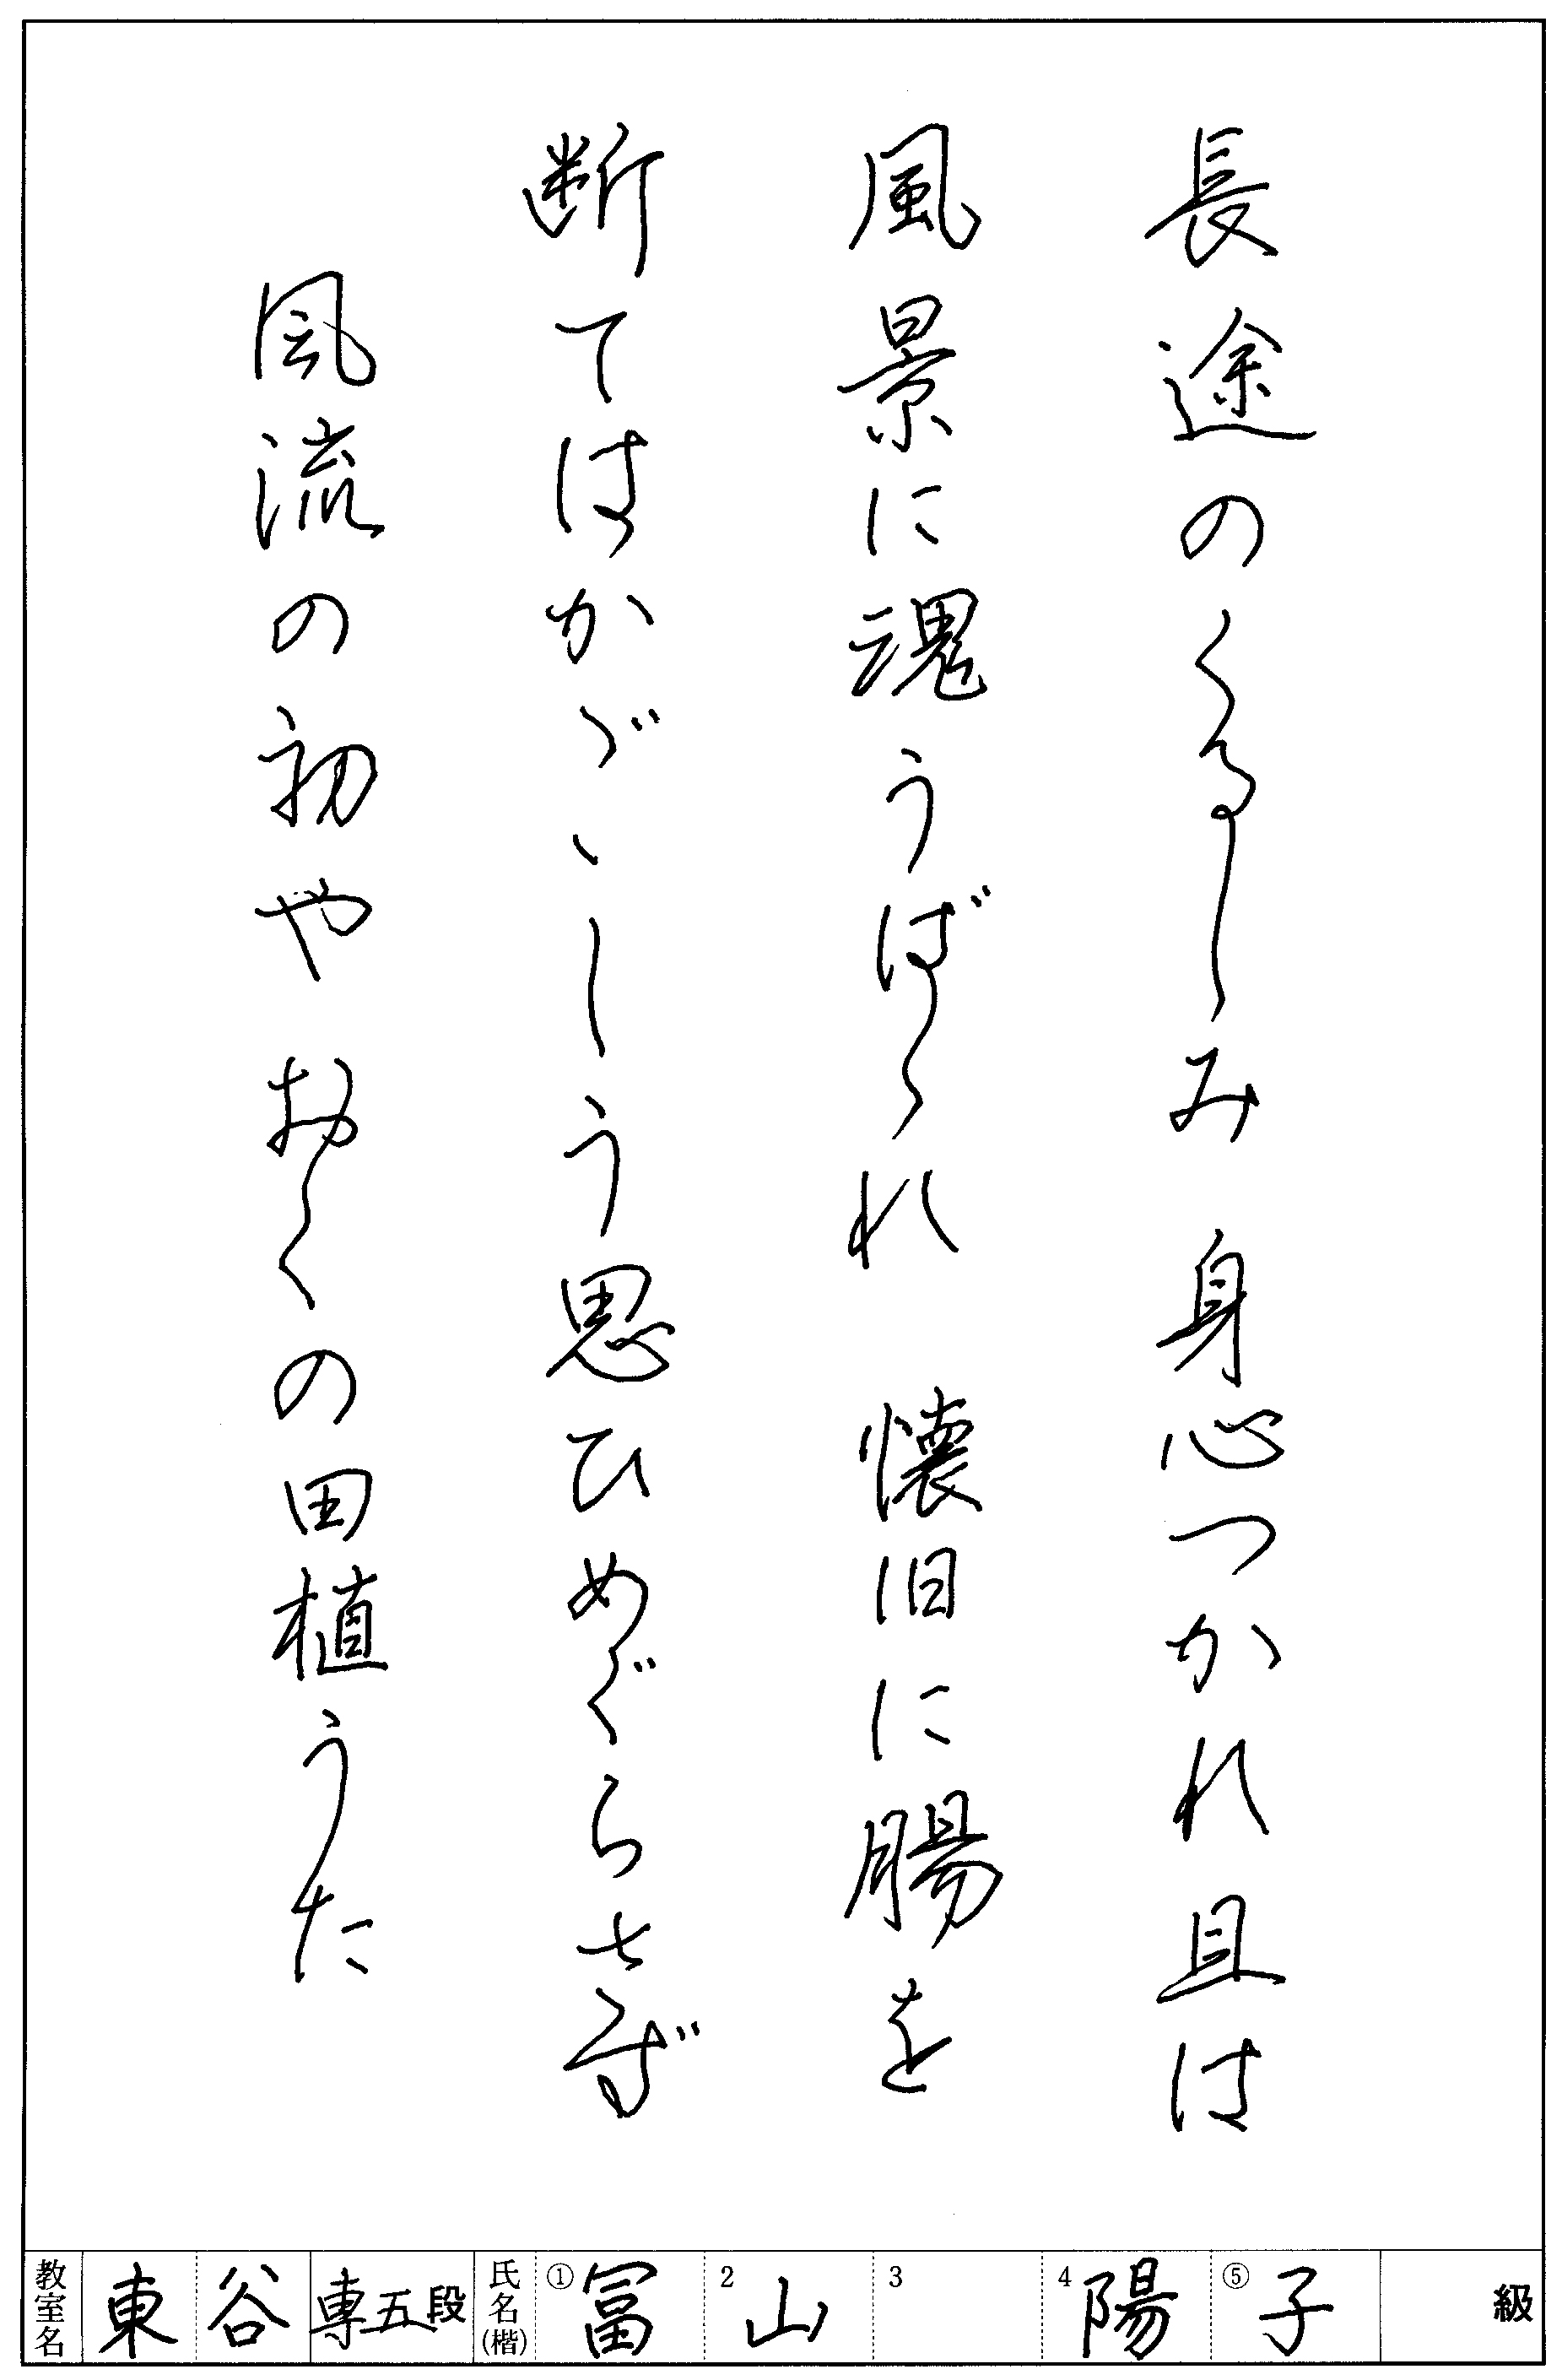 長途のくるしみ 身心つかれ且は
風景に魂うばゝれ 懐旧に腸を
断てはかゞゝしう思ひめぐらさず
風流の初やおくの田植うた
教室名 東谷 専五段 氏名(楷) ①冨 2山 3 4陽 ⑤子 級